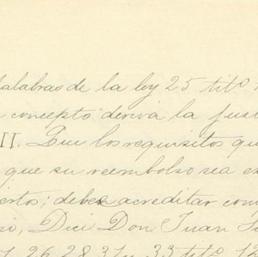 palabras de la ley 25 tito
concepto deriva la just
II. Que los requisitos qu
que su reembolso sea ex
debe acreditar com
Dici Don Juan
26, 28, 31 y 33 tito 12